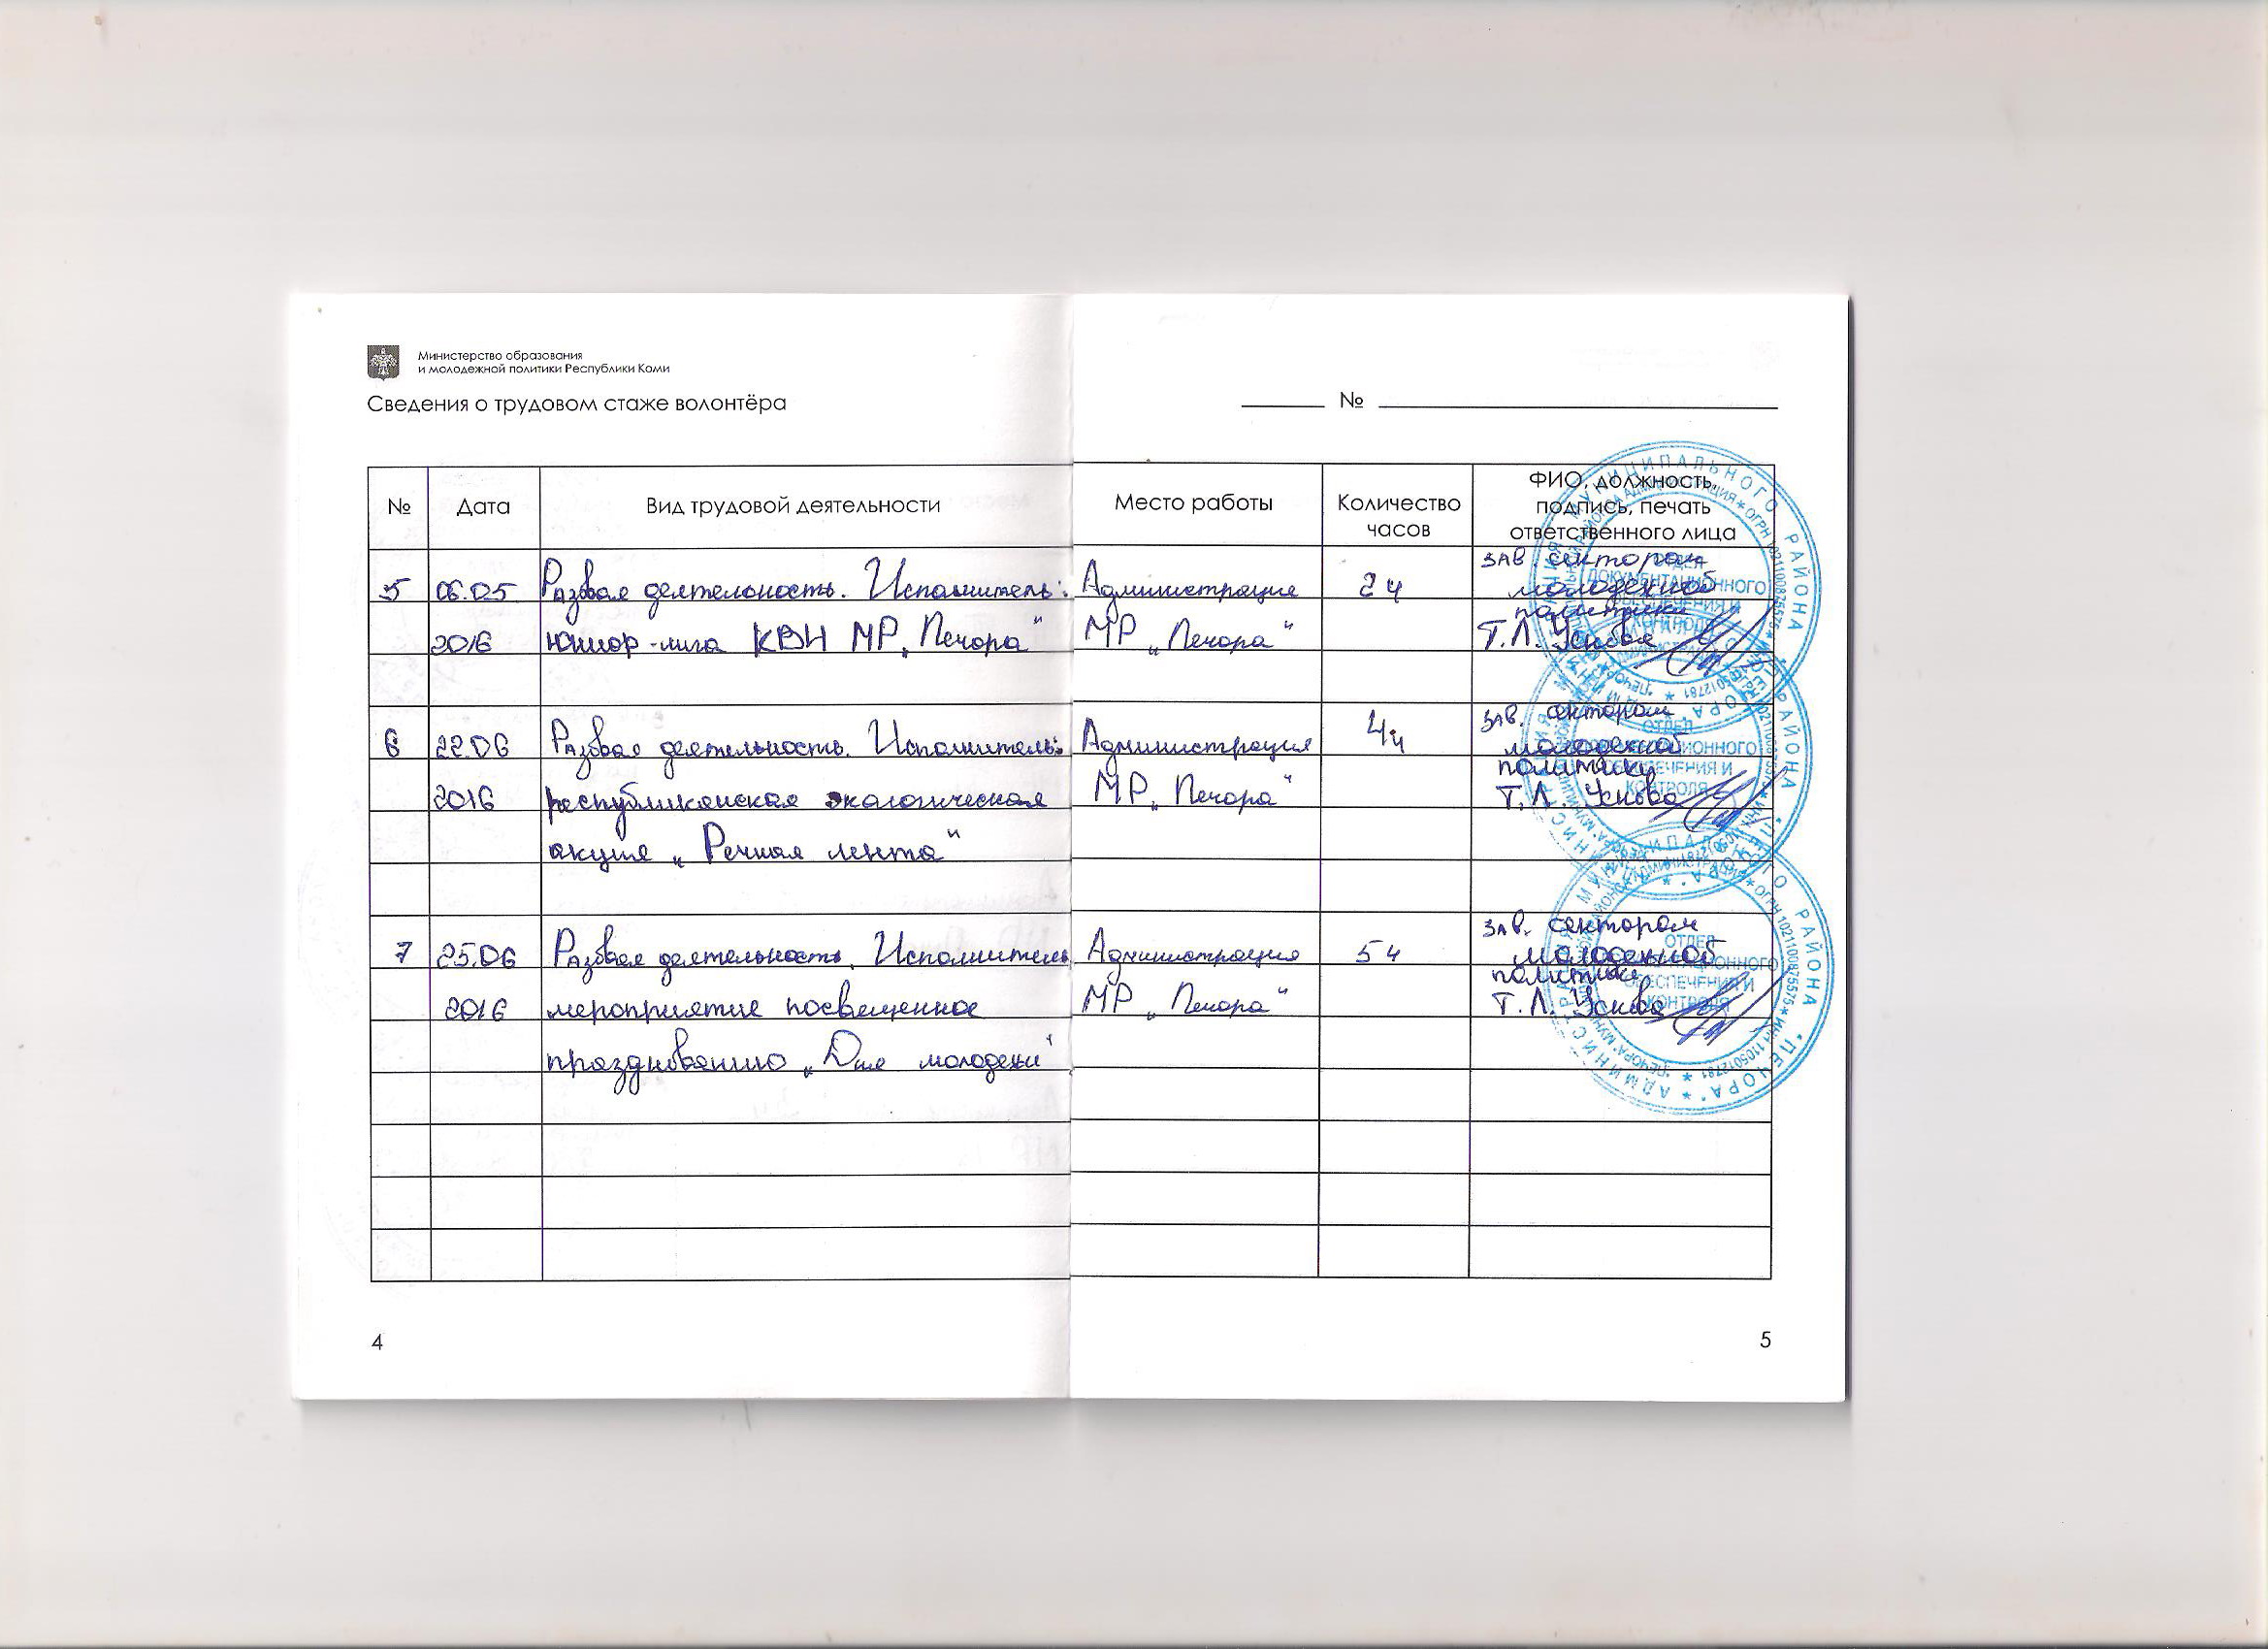 Министерство образования
и молодежной политики Республики Коми
Сведения о трудовом стаже волонтёра
№
№ Дата Вид трудовой деятельности Место работы Количество часов ФИО, должность, подпись, печать ответственного лица
5 06.05 Разовая деятельность. Исполнитель: Администрация 2ч зав. сектором
молодежной
политики
2016 Юниор-лига КВН МР „Печора“ МР „Печора“ Т.Л. Ускова
6 22.06 Разовая деятельность. Исполнитель: Администрация 4ч зав. сектором
молодежной
политики
2016 республиканская экологическая МР „Печора“ Т.Л. Ускова
акция „Речная лента“
7 25.06 Разовая деятельность. Исполнитель Администрация 5ч зав. сектором
молодежной
политики
2016 мероприятие посвещенное МР „Печора“ Т.Л. Ускова
празднованию „Дня молодежи“
4
5
АДМИНИСТРАЦИЯ МУНИЦИПАЛЬНОГО РАЙОНА "ПЕЧОРА"
ОГРН 1021100875575 * ИНН 1105012781
ОТДЕЛ
ДОКУМЕНТАЦИОННОГО
ОБЕСПЕЧЕНИЯ И
КОНТРОЛЯ